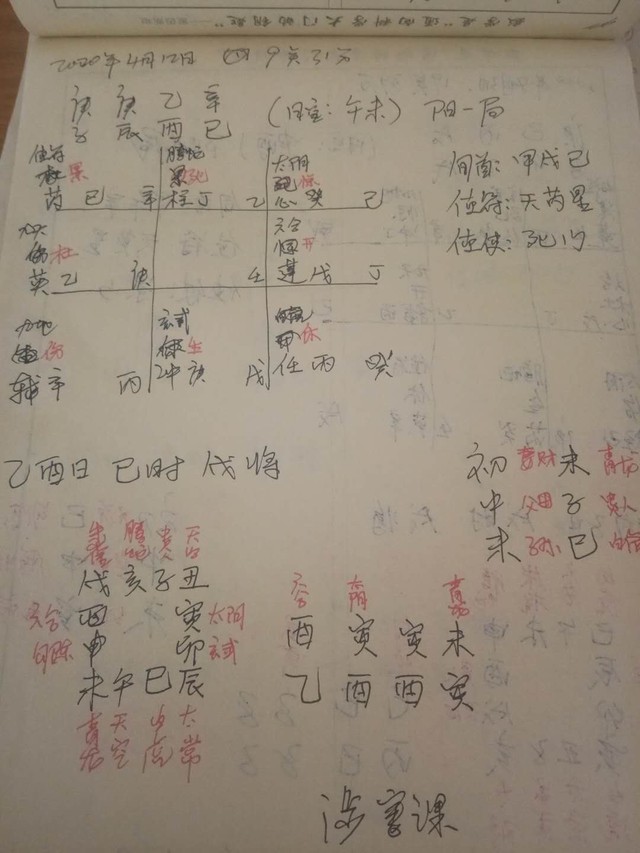 数学是"通向科学大门的钥匙"
2020年4月12日
庚 庚 乙 辛
子 辰 酉 巳
(日空: 午未) 阳一局
旬首: 甲戌己
值符: 天芮星
值使: 死门
值符 螣蛇 太阴
杜景 景死 惊
芮 己 辛 柱 丁 乙 心 癸 己
六合
九天 伤杜 开
英 乙 庚 壬 蓬 戊 丁
九地 玄武
伤 生 休
辅 辛 丙 冲 庚 戊 任 丙 癸
乙酉日 巳时 戌将
初 妻财 未 青龙
中 父母 子 贵人
末 子孙 巳 白虎
朱雀 螣蛇 贵人 天后
戌 亥 子 丑
六合 酉 寅 太阴
勾陈 申 卯 玄武
未 午 巳 辰
青龙 天空 白虎 太常
六合 太阴 青龙
酉 寅 寅 未
乙 酉 酉 寅
涉害课